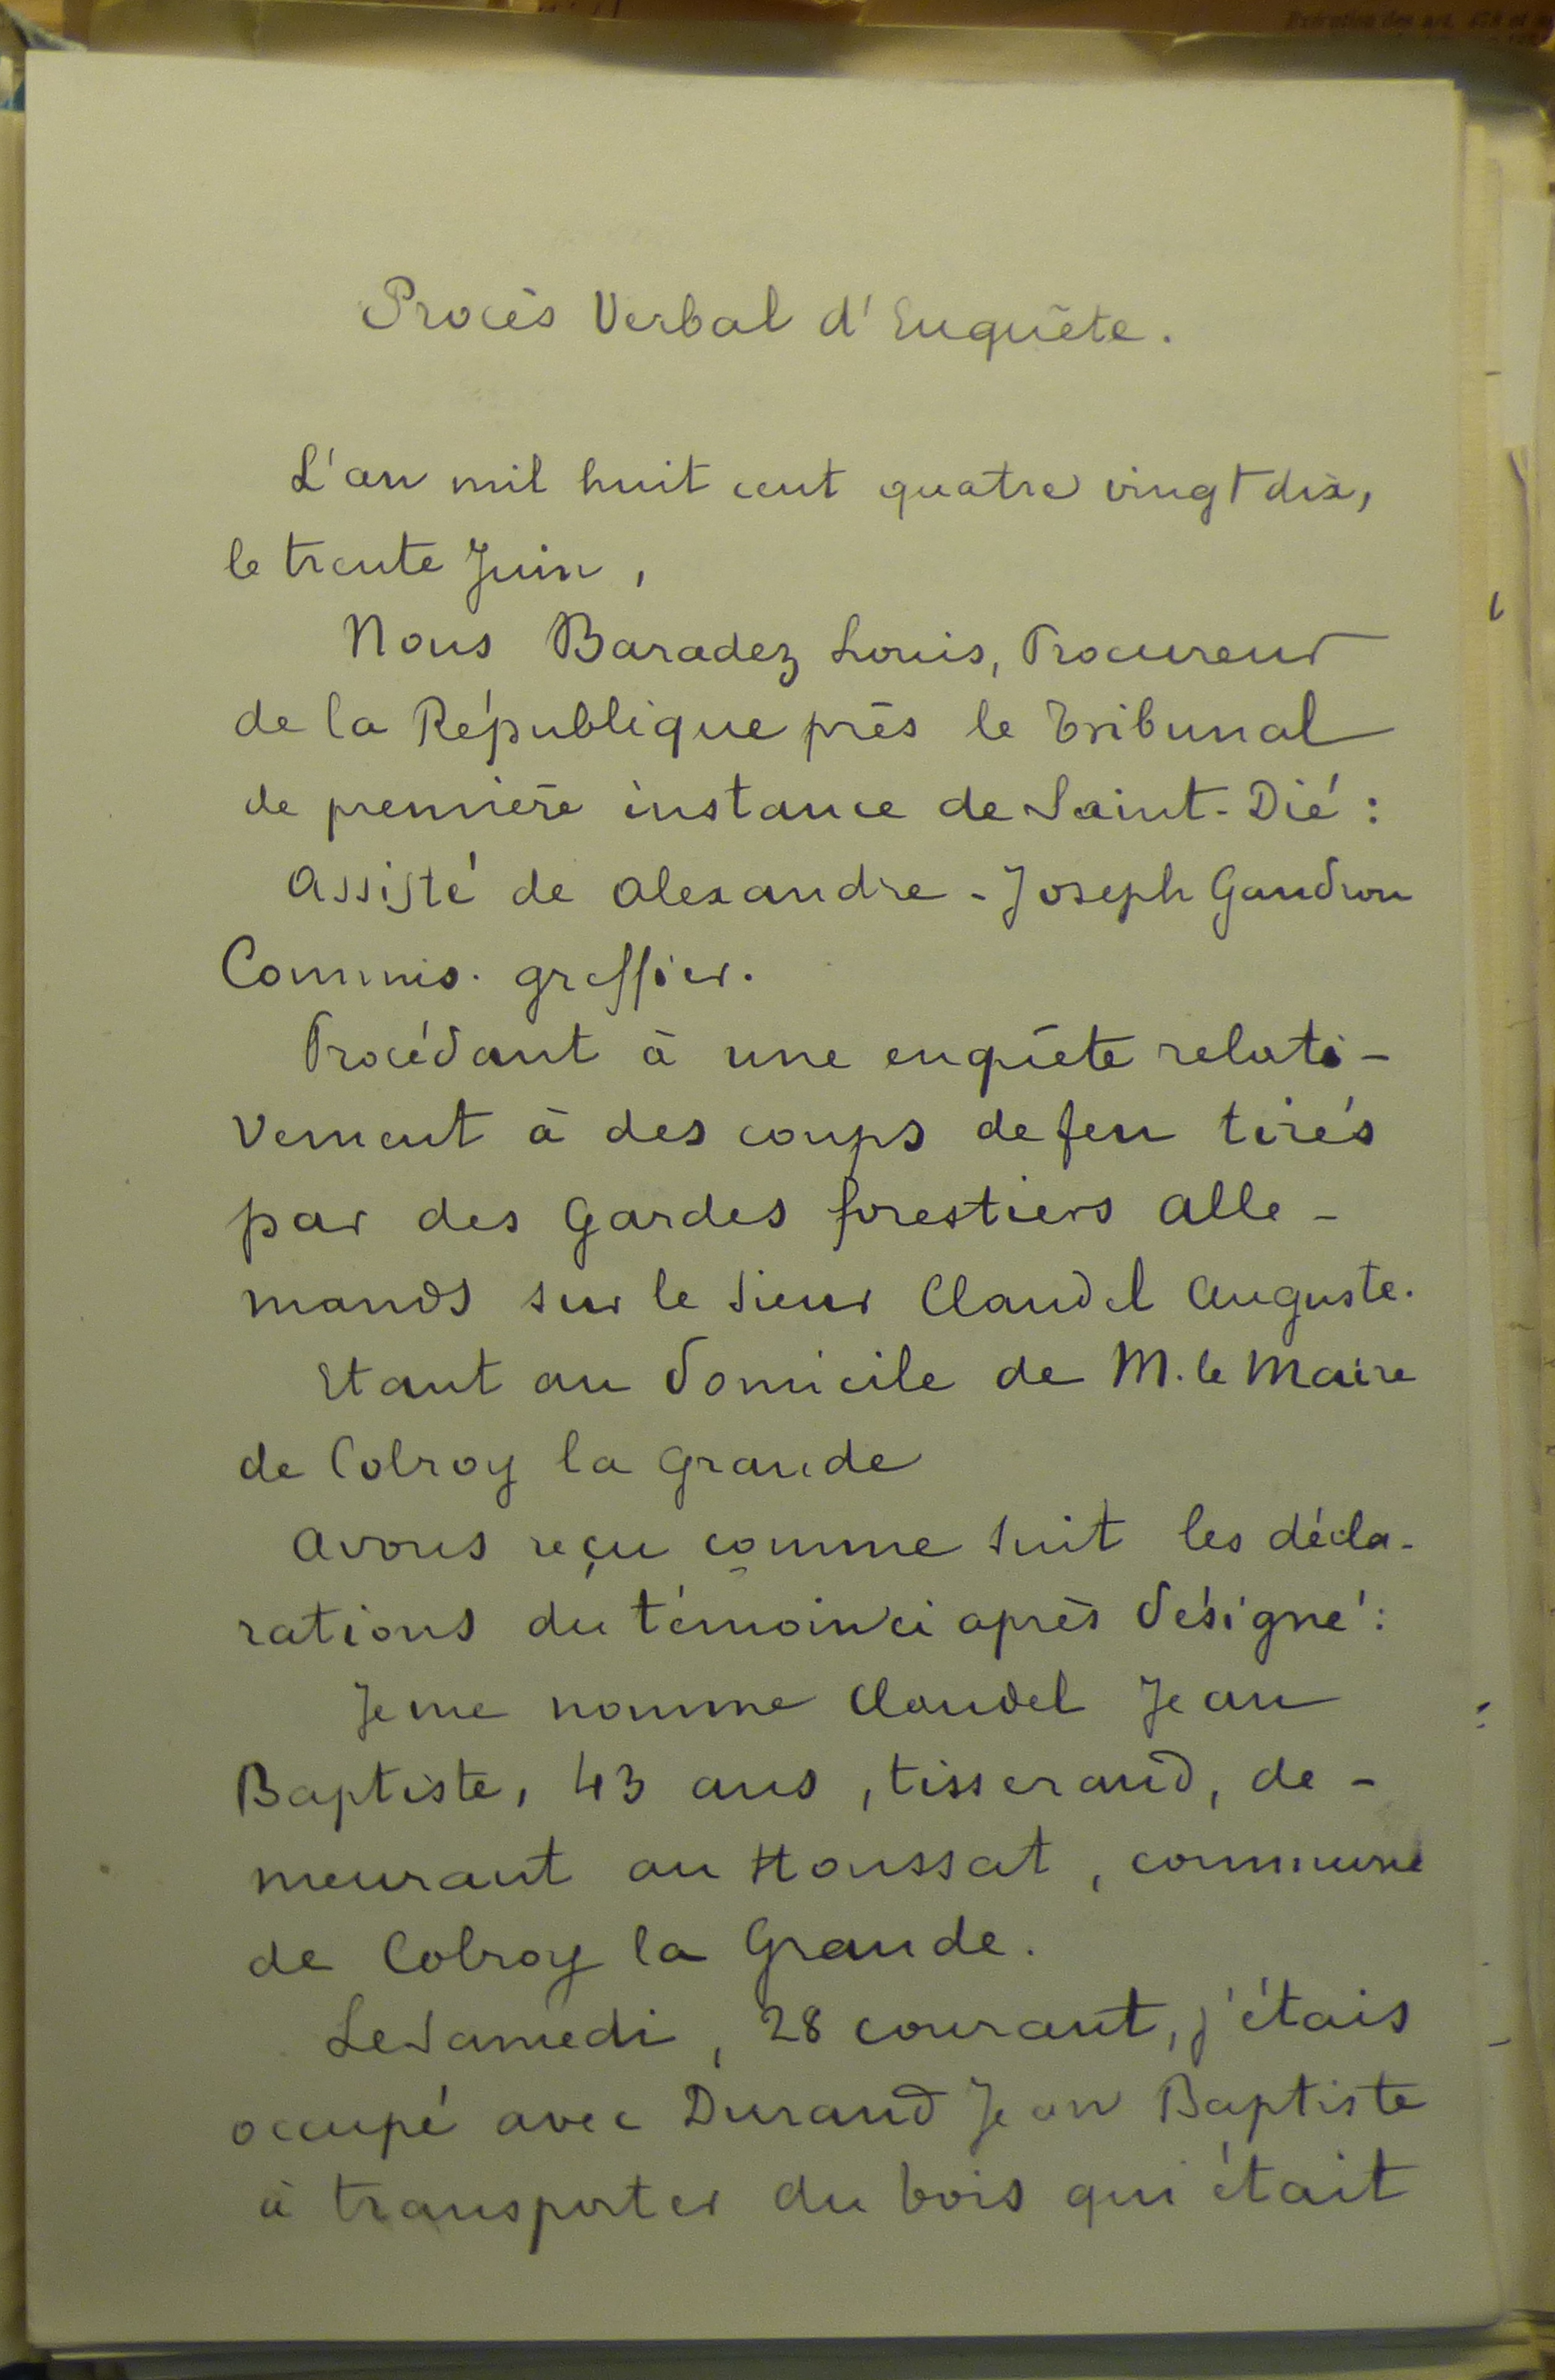 Procès Verbal d'Enquête.
L'an mil huit cent quatre vingt dix,
le trente Juin,
Nous Baradez Louis, Procureur
de la République près le Tribunal
de première instance de Saint-Dié :
Assisté de Alexandre-Joseph Gaudron
Commis-greffier.
Procédant à une enquête relati-
vement à des coups de feu tirés
par des gardes forestiers alle-
mands sur le sieur Claudel Auguste.
Etant au domicile de M. le Maire
de Colroy la Grande
Avons reçu comme suit les décla-
rations du témoin ci après désigné :
Je me nomme Claudel Jean
Baptiste, 43 ans, tisserand, de-
meurant au Houssat, commune
de Colroy la Grande.
Le Samedi, 28 courant, j'étais
occupé avec Durand Jean Baptiste
à transporter du bois qui était